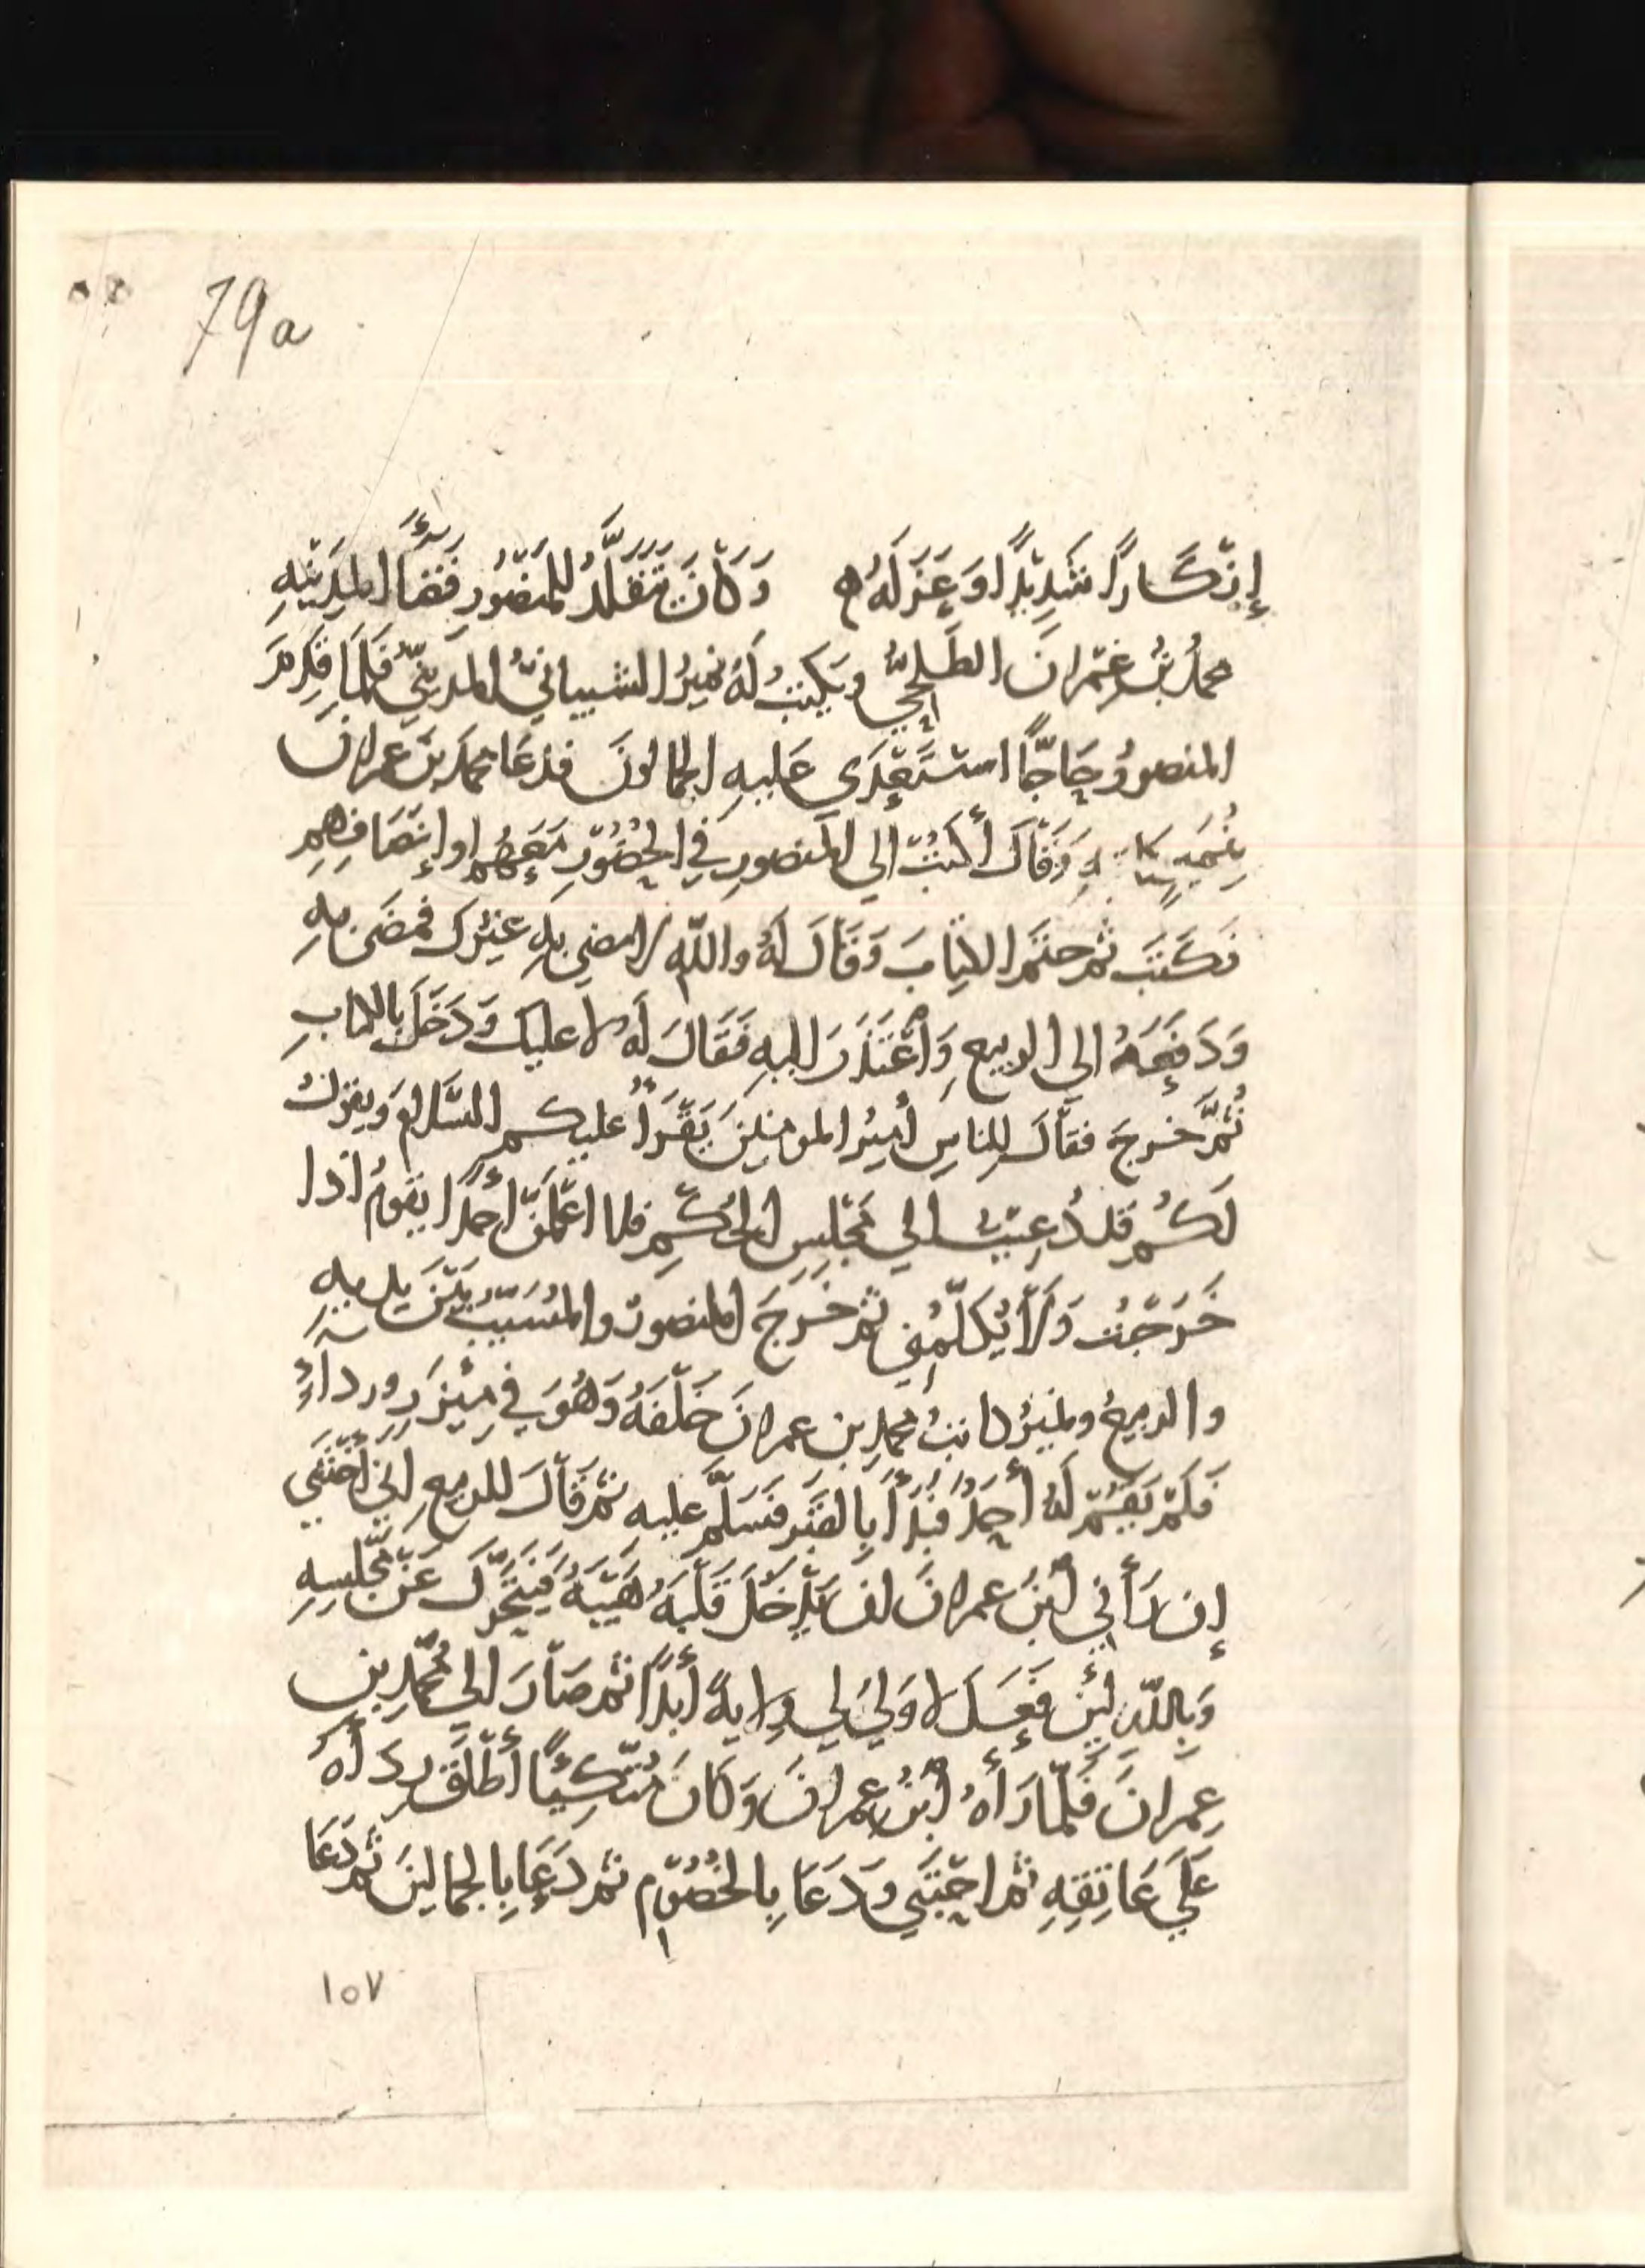 79a
إِنْكَارًا شَدِيْدًا وَعَزَلَهُ ه وَكَانَ يَتَقَلَّدُ لِلْمَنْصُوْرِ قَضَاءَ المَدِيْنَةِ
محمدُ بْنُ عِمْرَانَ الطَلْحِيُّ ويَكْتُبُ لَهُ نُمَيْرُ الشيبانيُّ المَدِيْنيُّ فَلَمَا قَدِمَ
المنصورُ حَاجًّا اسْتَعْدَى عَلَيهِ الجمالونَ فدَعَا محمدُ بنُ عمرانَ
وَقَالَ أكتُبْ الي المنصورِ في الحُضُوْرِ مَعَهُم او إنْصَافِهِم
فَكَتَبَ ثم ختم الكِتَابَ وَقَالَ لَهُ واللّهِ لا مضي بهِ غَيْرُك فمضَى بهِ
وَدَفَعَهُ الي الربيعِ وَاعْتَذَرَ اليهِ فَقَالَ لَهُ لا عليك وَدَخَلَ بالكتابِ
ثُمَّ خرجَ فقالَ لِلناسِ أميرُ المومنينَ يَقْرَأُ عليكم السَّلامَ ويقولُ
لَكُم قد دُعِيْتُ الي مَجْلِسِ الحُكْمِ فلا اعْلَمَنَّ احدًا يقومُ اذا
خَرَجْتُ وَلَا يُكَلِّمُنِي ثم خَرَجَ المنصورُ والمُسَيَّبُ بَيْنَ يديهِ
والربيعُ ونميرُ كاتبُ محمدِ بن عمرانَ خَلْفَهُ وَهُوَ في مِئْزَرٍ ورداءٍ
فَلَمْ يَقُمْ لَهُ أَحَدٌ فَبَدَأَ بِالقَبْرِ فَسَلَّمَ عليه ثم قَالَ للربيعِ اني أَخْشَى
إن رَأَني ابْنُ عمرانَ ان تَدْخُلَ قَلْبَهُ هَيْبَةٌ فَيَتَحَرَّكَ عَنْ مَجْلِسِهِ
وَبِاللّهِ لَئِن فَعَلَ لا وَلِيَ لي وِلايةً أبَدًا ثم صَارَ الي مُحَمَّدِ بنِ
عِمرانَ فَلَمَّا رَأَهُ ابْنُ عمرانَ وَكَانَ مُتَّكِئًا أَطْلَقَ رِدَأهُ
عَلَي عَاتِقِهِ ثم احْتَبَي وَدَعَا بِالخُصُوْمِ ثم دَعَا بِالجمالينَ ثم دَعَا
١٥٧